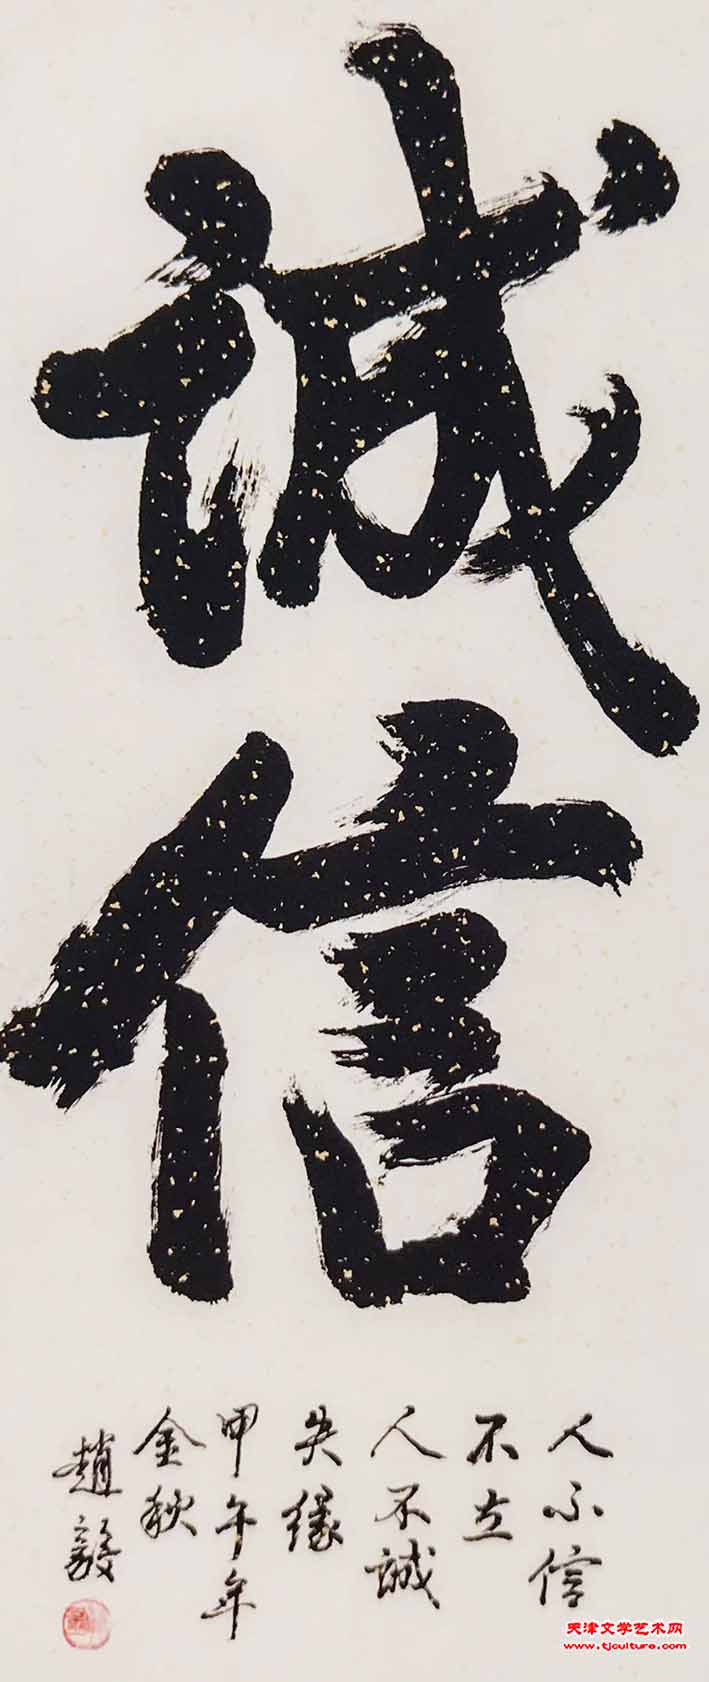 誠信
人不信
不立
人不誠
失緣
甲午年
金秋
趙毅
天津文学艺术网
www.tjculture.com